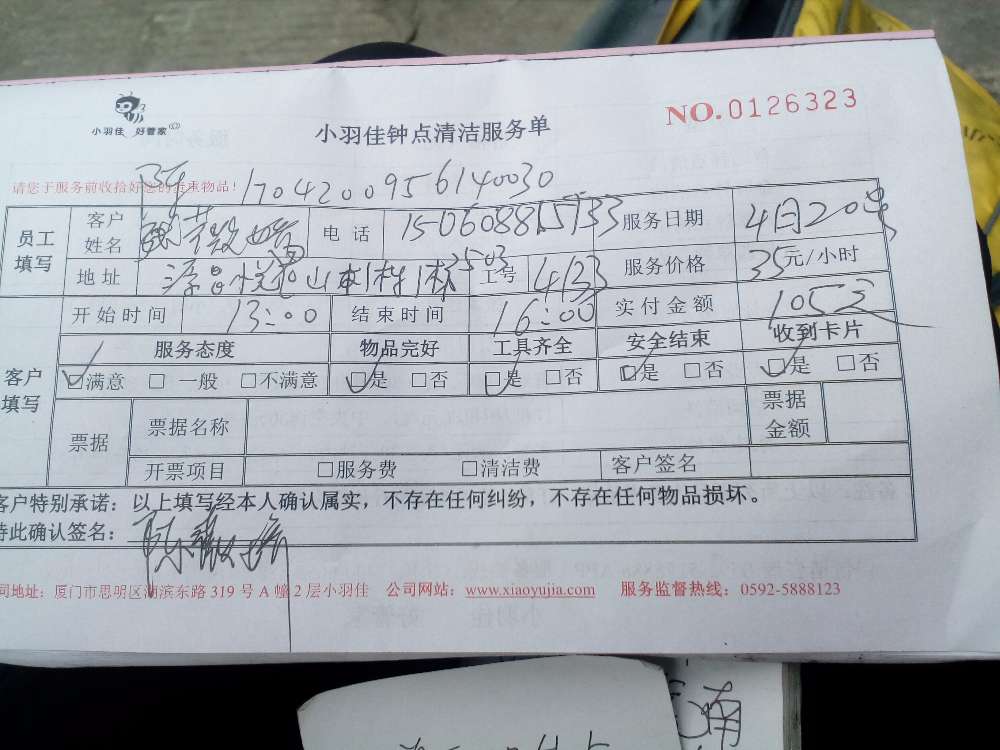 小羽佳 好管家
小羽佳钟点清洁服务单
NO.0126323
请您于服务前收拾好您的贵重物品！
陈 1704200956140030
员工填写 客户姓名 电话 服务日期 4月20
地址 工号 4133 服务价格 35元/小时
开始时间 13:00 结束时间 16:00 实付金额 105元
客户填写 服务态度 物品完好 工具齐全 安全结束 收到卡片
☑满意 □一般 □不满意 ☑是 □否 ☑是 □否 ☑是 □否 ☑是 □否
票据 票据名称 票据金额
开票项目 □服务费 □清洁费 客户签名
客户特别承诺：以上填写经本人确认属实，不存在任何纠纷，不存在任何物品损坏。
特此确认签名：陈
司地址：厦门市思明区湖滨东路 319 号 A 幢 2 层小羽佳 公司网站：www.xiaoyujia.com 服务监督热线：0592-5888123